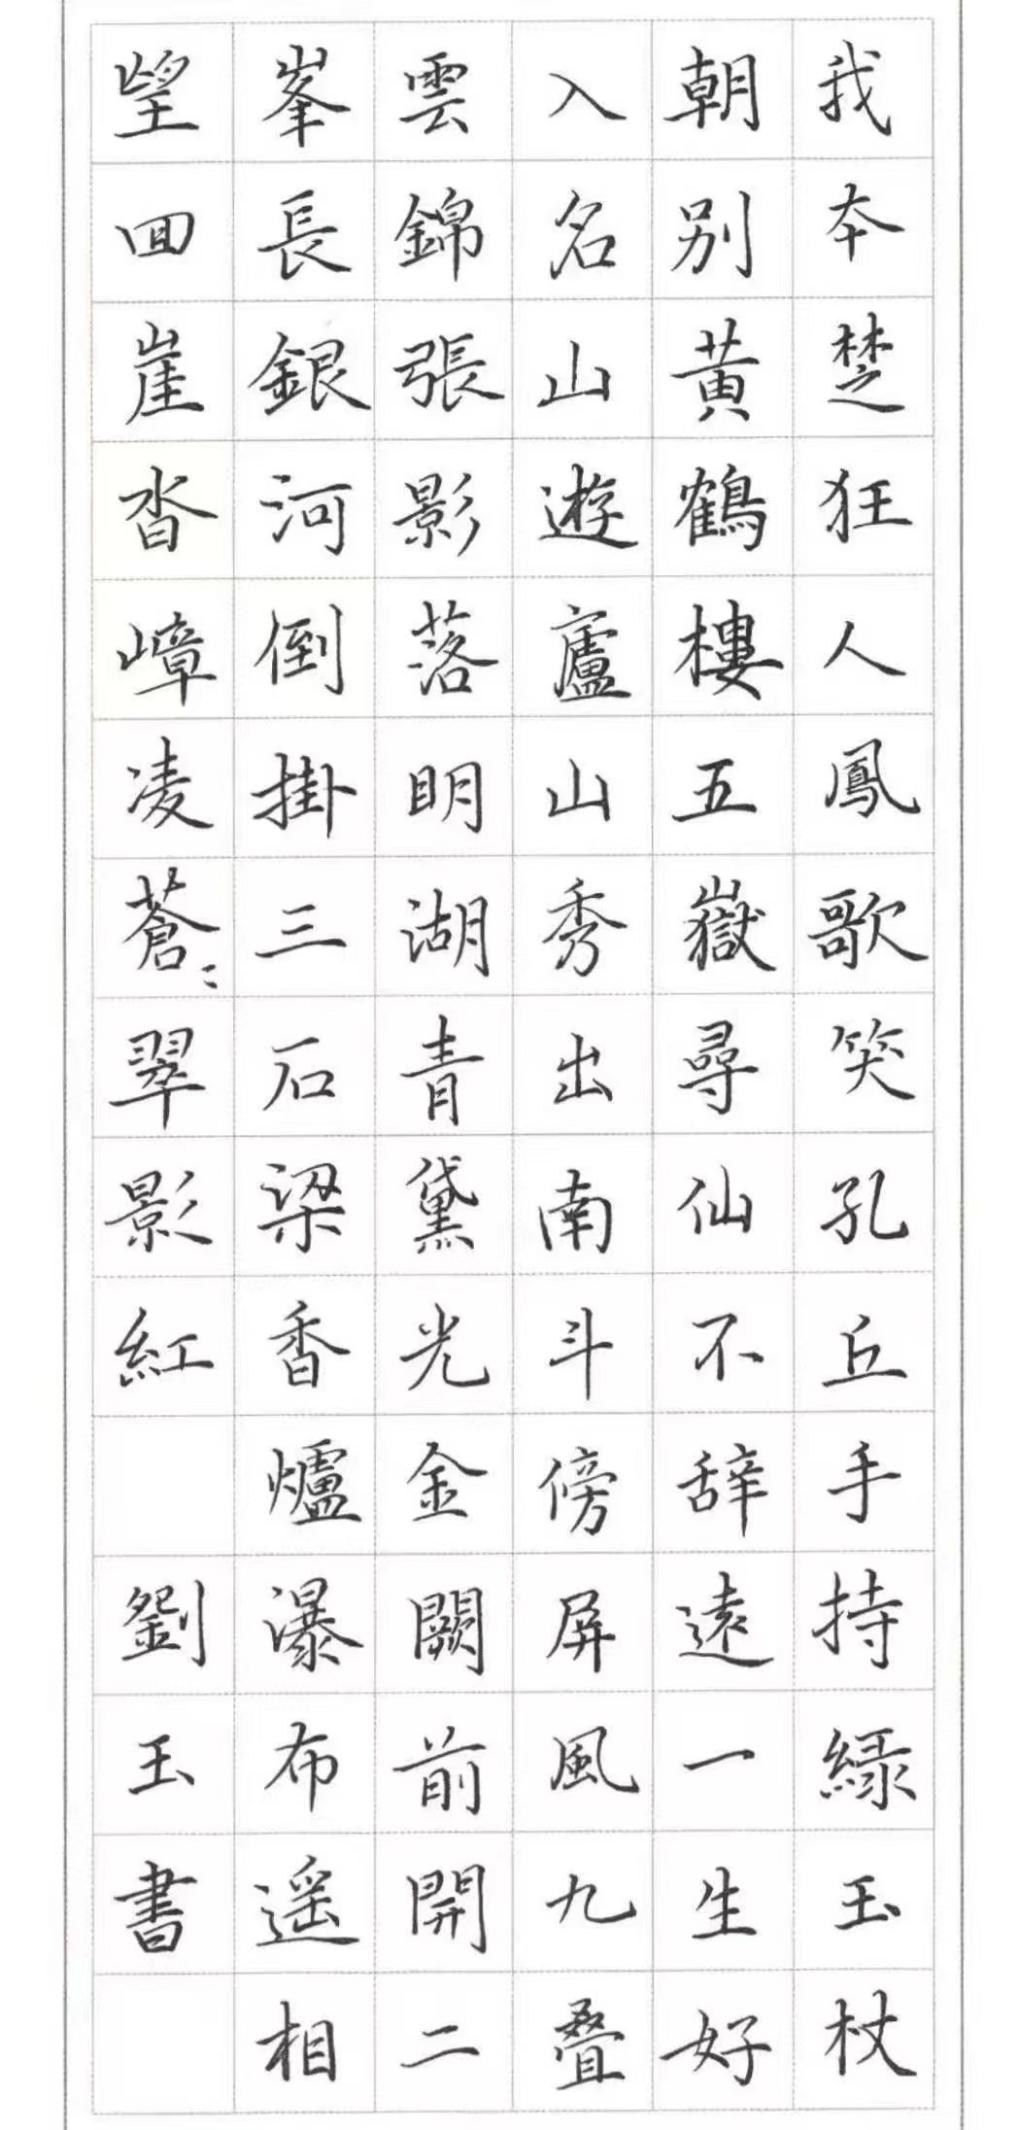 我本楚狂人鳳歌笑孔丘手持緑玉杖
朝别黄鶴樓五嶽尋仙不辞遠一生好
入名山遊廬山秀出南斗傍屏風九叠
雲錦張影落明湖青黛光金闕前開二
峯長銀河倒掛三石梁香爐瀑布遥相
望回崖沓嶂凌蒼〻翠影紅
劉玉書